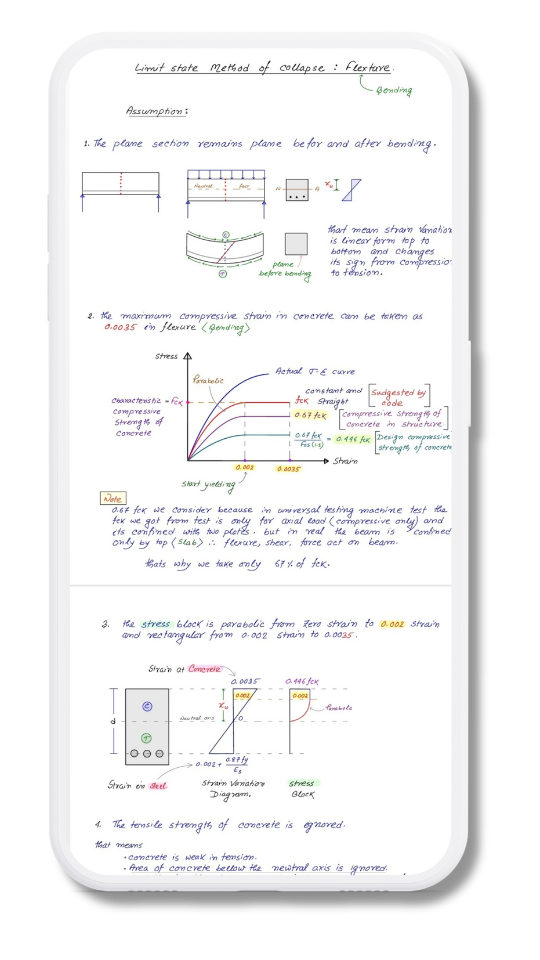 Limit state Method of collapse : Flexture.
Bending
Assumption:
1. The plane section remains plane befor and after bending.
Neutral
N
A
xu
C
T
plane
before bending
that mean strain Variation
is linear form top to
bottom and changes
its sign from compressio
to tension.
2. the maximum compressive strain in concrete can be taken as
0.0035 in flexure (Bending)
Stress
Parabolic
Actual σ-ε curve
characteristic = fck
compressive
strength of
Concrete
fck
constant and
Straight
[Sudgested by
code]
0.67 fck
[compressive strength of
concrete in structure]
0.67 fck
FOS(1.5)
= 0.446 fck
[Design compressive
strength of concrete
Strain
0.002
0.0035
Start yielding
Note
0.67 fck we consider because in universal testing machine test the
fck we got from test is only for axial load (compressive only) and
its confined with two plates. but in real the beam is confined
only by top (slab) ∴ flexure, shear, force act on beam.
thats why we take only 67% of fck.
3. the stress block is parabolic from zero strain to 0.002 strain
and rectangular from 0.002 strain to 0.0035.
Strain at Concrete
0.0035
0.446 fck
0.002
0.002
d
C
xu
Neutral axis
O
Parabola
T
0.002 + 0.87fy
Es
Strain in Steel
Strain Variation
Diagram.
stress
Block
4. The tensile strength of concrete is egnored.
that means
• concrete is weak in tension.
• Area of concrete bellow the newtral axis is ignored.